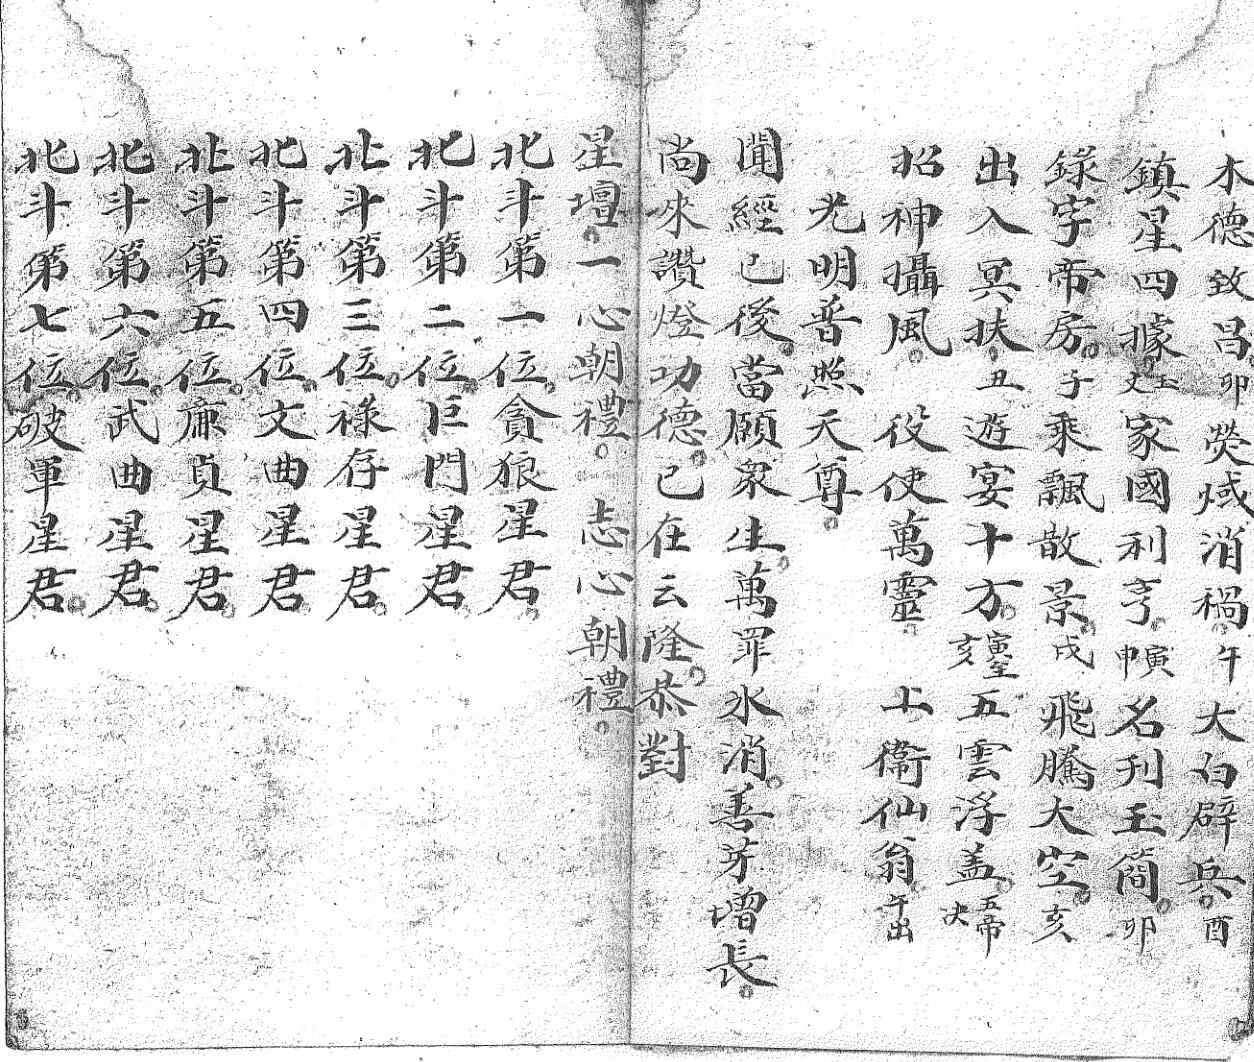 木德致昌卯熒惑消禍。午大白辟兵。酉
鎮星四據丑文家國利亨。寅申名刊玉簡。卯
錄字帝房。子乘飄散景。戌飛騰大空。亥
出入冥扶。丑遊宴十方。寅至亥五雲浮盖。五帝决
招神攝風。役使萬靈。上衛仙翁。午出
光明普照天尊。
聞經已後。當願衆生。萬罪氷消。善芽增長。
尚來讚燈功德。已在云隆。恭對
星壇。一心朝禮。志心朝禮。
北斗第一位。貪狼星君。
北斗第二位。巨門星君。
北斗第三位。祿存星君。
北斗第四位。文曲星君。
北斗第五位。廉貞星君。
北斗第六位。武曲星君。
北斗第七位。破軍星君。